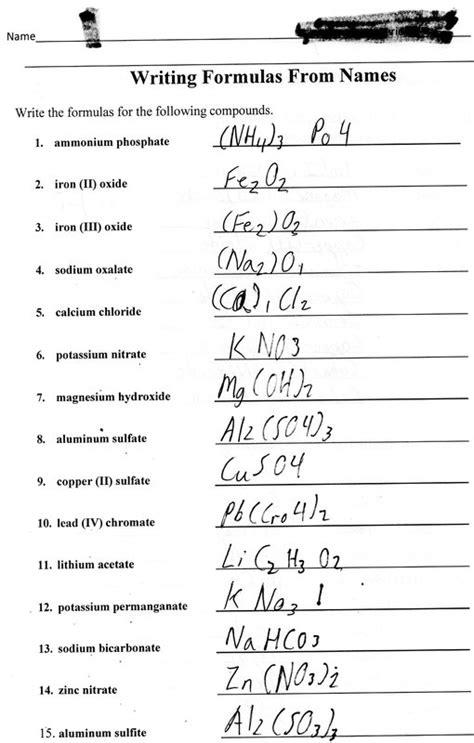 Name
Writing Formulas From Names
Write the formulas for the following compounds.
1. ammonium phosphate (NH4)3 Po4
2. iron (II) oxide Fe2O2
3. iron (III) oxide (Fe2)O2
4. sodium oxalate (Na2)O1
5. calcium chloride (Ca)1Cl2
6. potassium nitrate K NO3
7. magnesium hydroxide Mg(OH)2
8. aluminum sulfate Al2(SO4)3
9. copper (II) sulfate CuSO4
10. lead (IV) chromate Pb(Cro4)2
11. lithium acetate Li C2H3O2
12. potassium permanganate K No3
13. sodium bicarbonate Na HCO3
14. zinc nitrate Zn (NO3)2
15. aluminum sulfite Al2(SO3)3